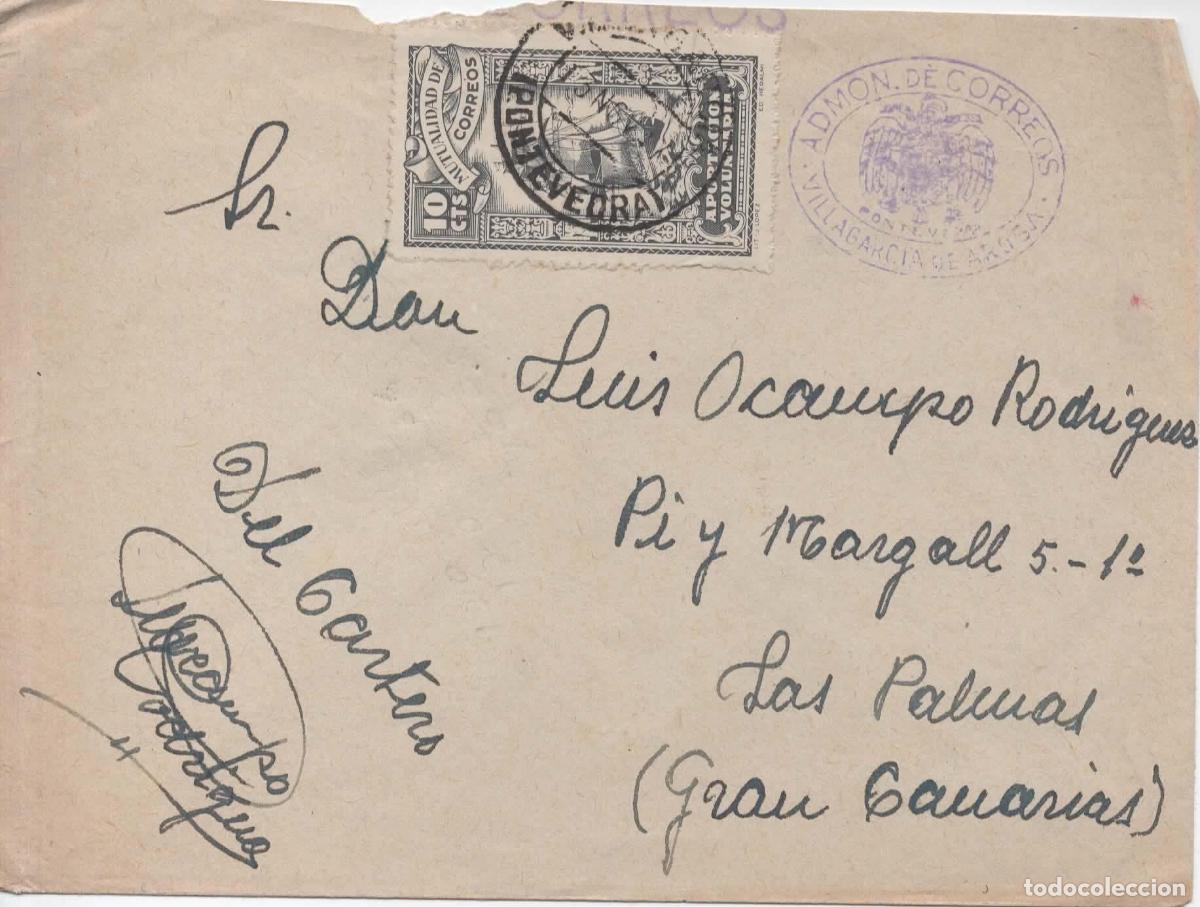 CORREOS
MUTUALIDAD DE
CORREOS
10
CTS
APORTACION
VOLUNTARIA
(PONTEVEDRA)
ADMON. DE CORREOS
PONTEVEDRA
VILLAGARCIA DE AROSA
Sr.
Don
Luis Ocampo Rodriguez
Pi y Margall 5.-1º
Las Palmas
(Gran Canarias)
Del Cartero
Ocampo
todocoleccion